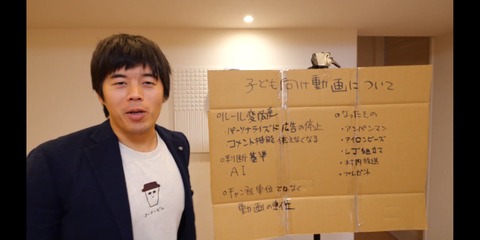 子ども向け動画について
○ルール変更後
パーソナライズド広告の停止
コメント機能使えなくなる
○判断基準
AI
○チャンネル単位でなく
動画の単位
○なったもの
・アンパンマン
・アイロンビーズ
・LJ組立て
・村内放送
・プレゼント